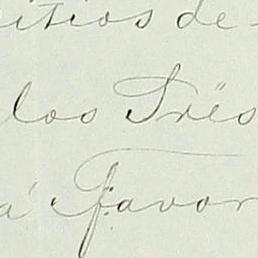 itios de
los Três
á Favor